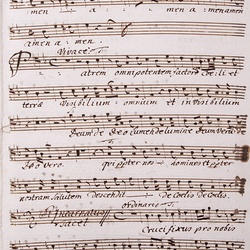 men a men amenamen
amen a men.
Vivace
Patrem omnipotentem factorem coeli et
terrae Visibilium omnium et invisibilium
Deum de Deo Lumen de lumine Deum verum de
Deo vero. qui propter nos homines et propter
nostram salutem descendit de Coelis de Coelis.
Et incarnatus ordinario
tacet Crucifixus pro nobis